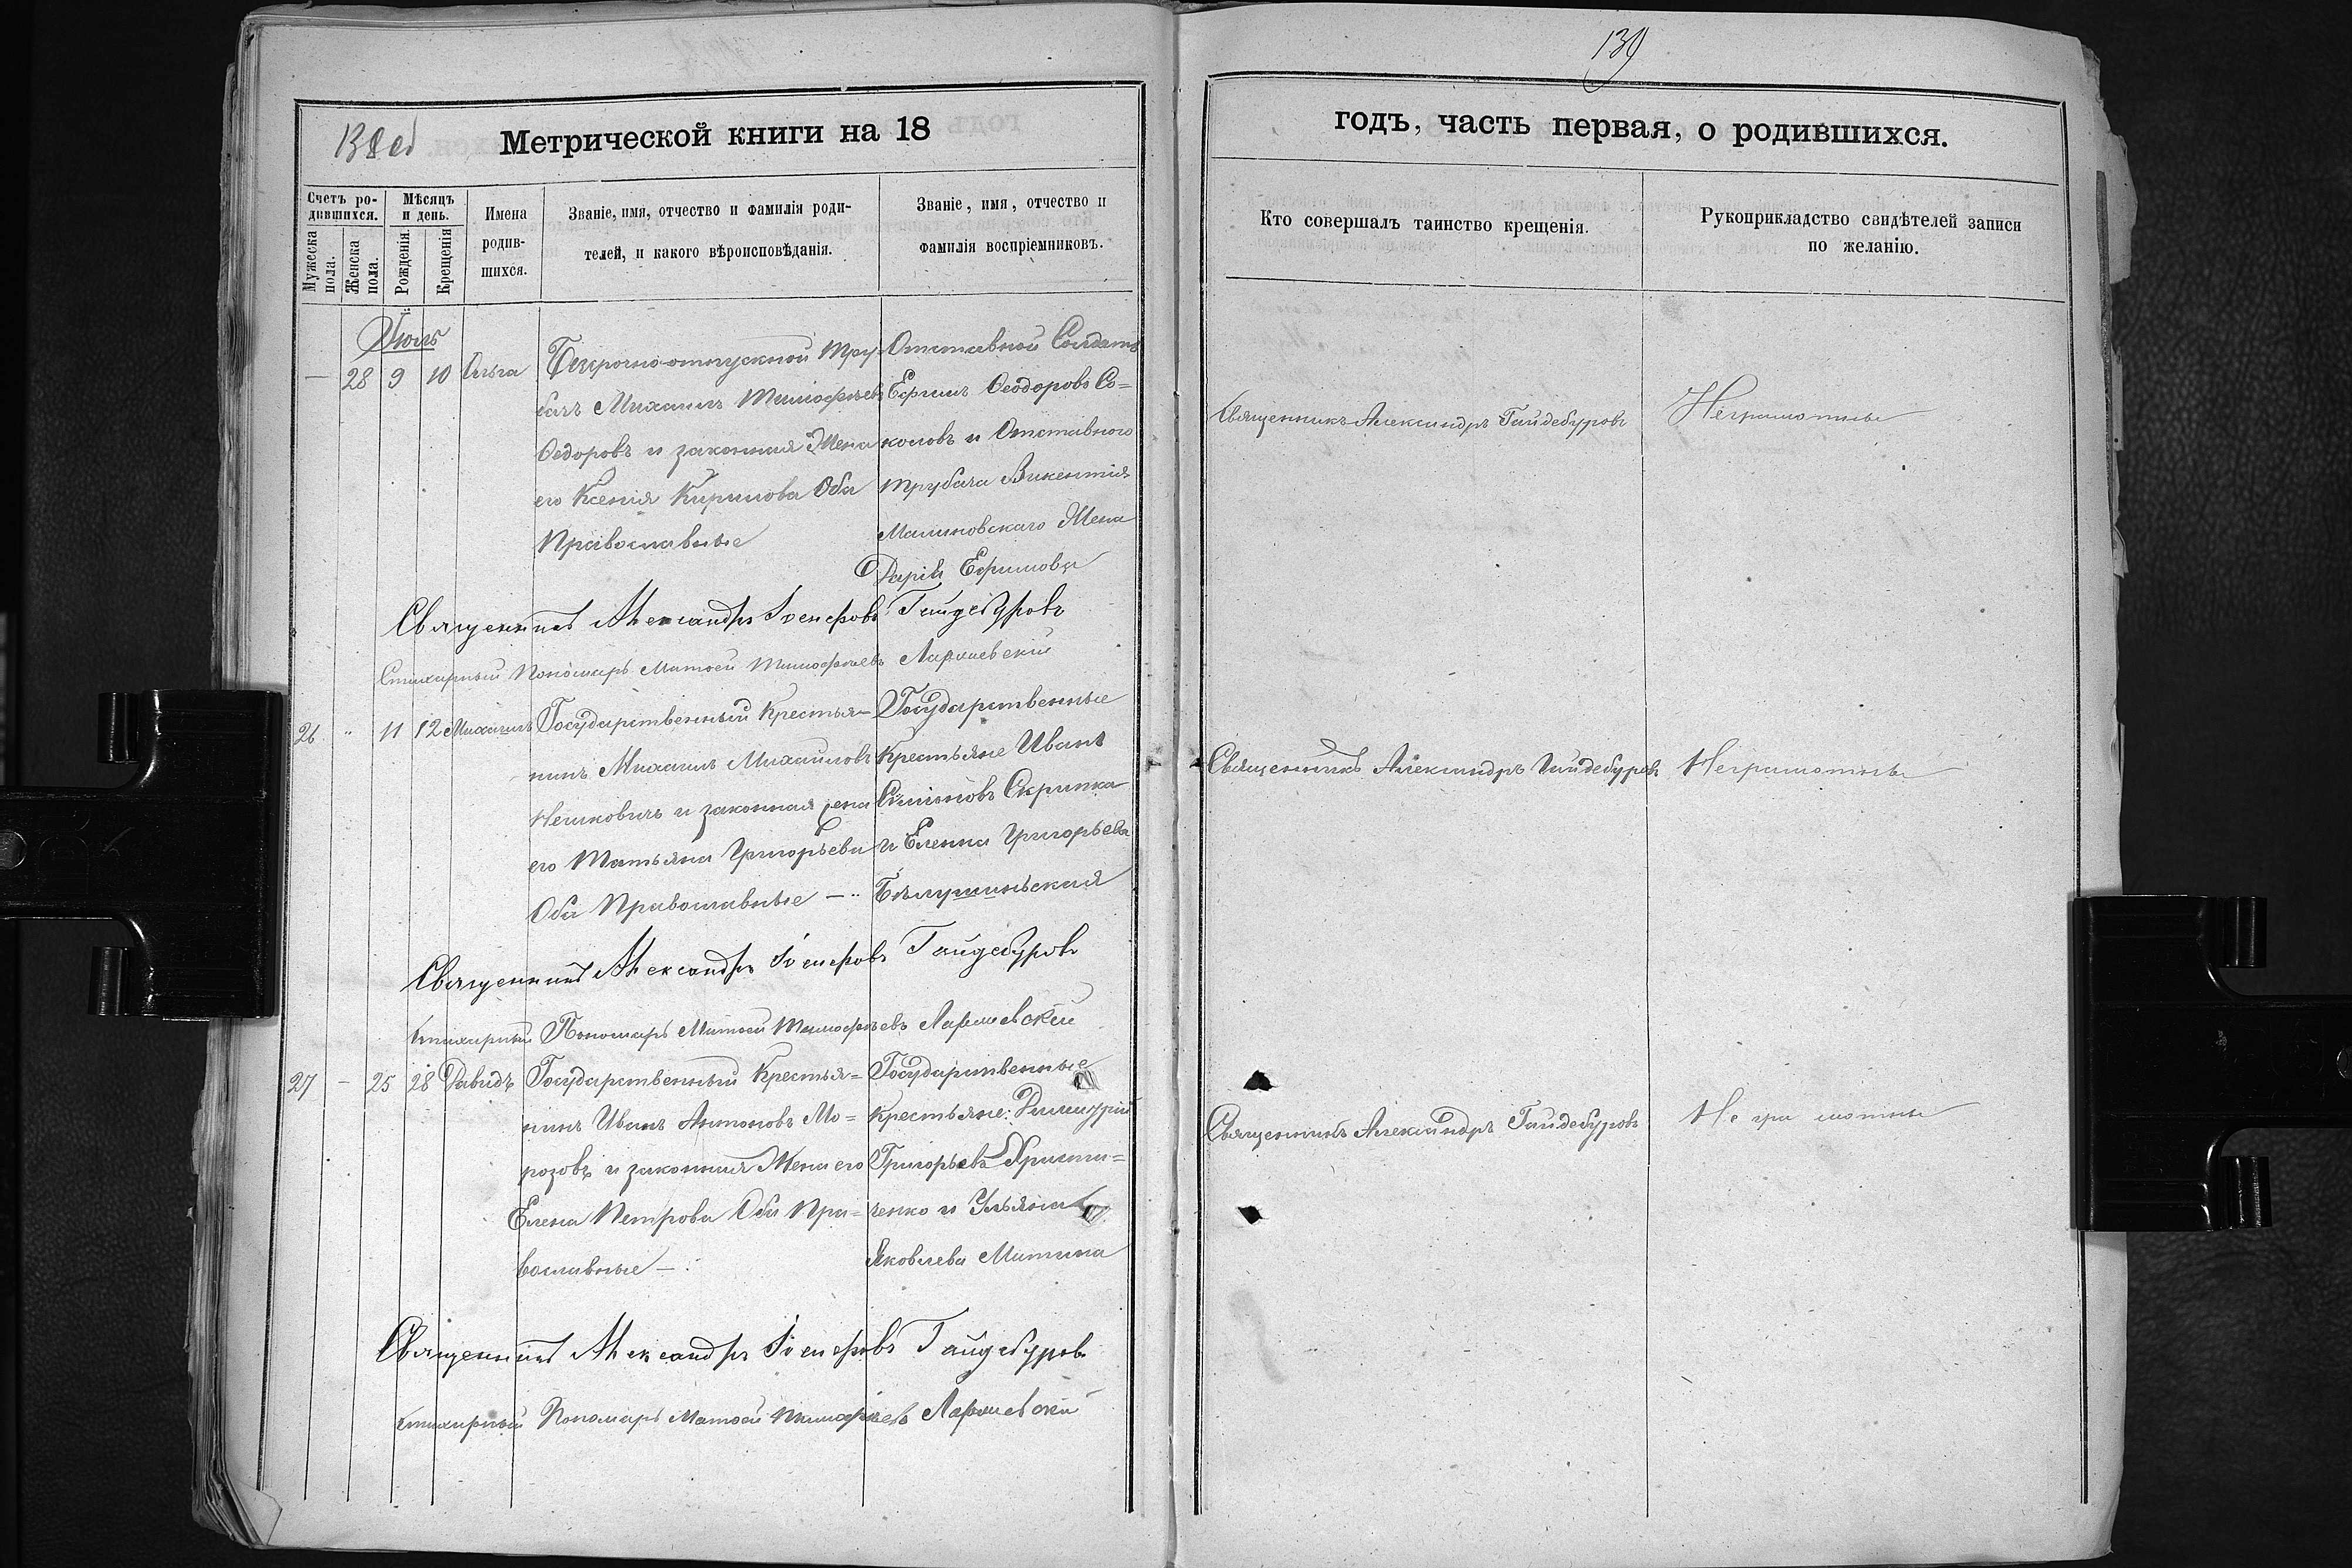 139
138 об
Метрической книги на 18
годъ, часть первая, о родившихся.
Счетъ родившихся.
Мужеска пола.
Женска пола.
Мѣсяцъ и день.
Рожденія.
Крещенія
Имена родившихся.
Званіе, имя, отчество и фамилія родителей, и какого вѣроисповѣданія.
Званіе, имя, отчество и фамилія воспріемниковъ.
Кто совершалъ таинство крещенія.
Рукоприкладство свидѣтелей записи по желанію.
Июль
— 28 9 10 Ольга
Безсрочно-отпускной Тру-
бачъ Михаилъ Тимофѣевъ
Федоровъ и законная Жена
его Ксенія Кирилова Оба
Православные
Отставной Солдатъ
Ефимъ Феодоровъ Со=
коловъ и Отставного
трубача Викентія
Малиновскаго Жена
Дарія Ефимова
Священникъ Александръ Гайдебуровъ
Неграмотны
Священникъ Александръ Гайдебуровъ
Стихарный Пономарь Матѳей Тимофѣевъ
26 " 11 12 Михаилъ
Государственный Крестья-
нинъ Михаилъ Михайловъ
и законная жена
его Татьяна Григорьева
Оба Православные —
Государственные
Крестьяне Иванъ
Симоновъ Скрипка
и Елена Григорьева
Священникъ Александръ Гайдебуровъ
Неграмотны
Священникъ Александръ Гайдебуровъ
Стихарный Пономарь Матѳей Тимофѣевъ
27 — 25 28 Давидъ
Государственный Крестья=
нинъ Иванъ Антоновъ Мо=
розовъ и законная Жена его
Елена Петрова Оба Пра=
вославные —
Государственные
Крестьяне: Димитрій
Григорьевъ Христи=
ченко и Ульяна
Яковлева Митина
Священникъ Александръ Гайдебуровъ
Неграмотны
Священникъ Александръ Гайдебуровъ
Стихарный Пономарь Матѳей Тимофѣевъ